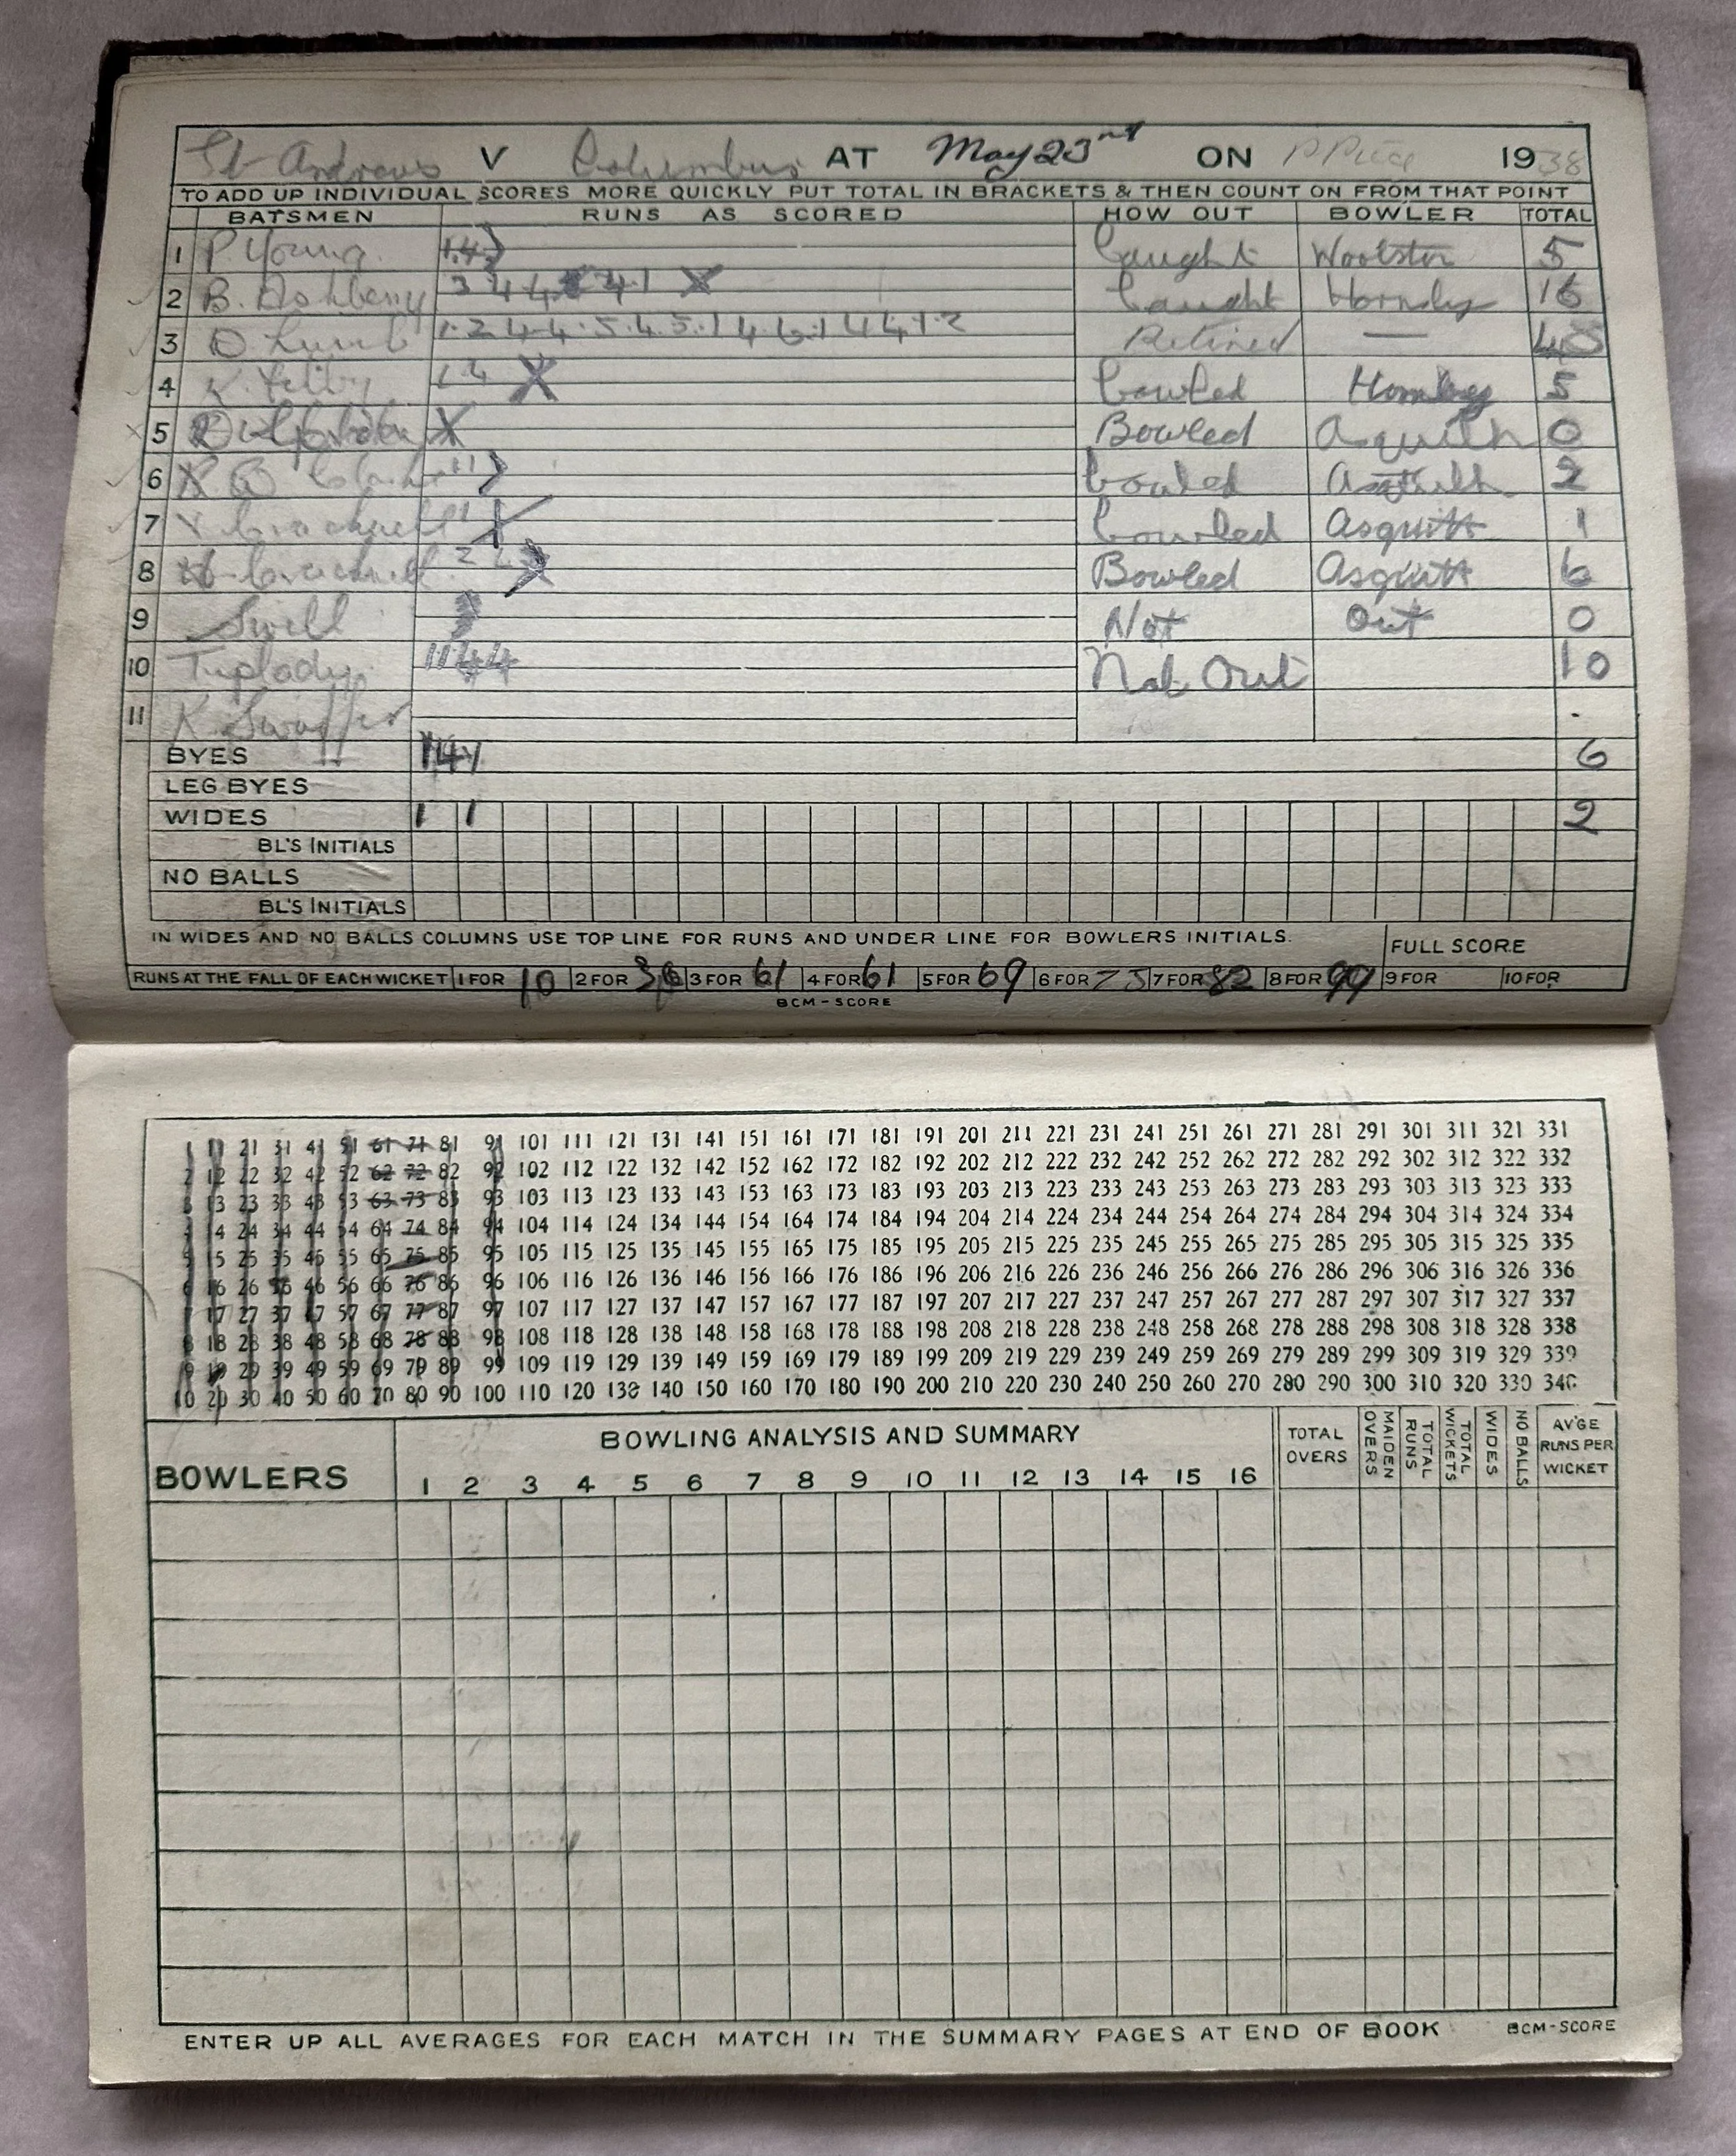 St Andrews V Columbus AT May 23rd ON 1938
TO ADD UP INDIVIDUAL SCORES MORE QUICKLY PUT TOTAL IN BRACKETS & THEN COUNT ON FROM THAT POINT
BATSMEN RUNS AS SCORED HOW OUT BOWLER TOTAL
1 P. Young 1.4 Caught Woolston 5
2 B. Ashberry 3 4 4 4.1 X Caught Hornby 16
3 D Lumb 1.2 4.4.5.4.5.1 4.6.1 4 4 1.2 Retired — 48
4 K. 1 4 X bowled Hornby 5
5 X Bowled Asquith 0
6 1 1 bowled Asquith 2
7 Cracknell 1 X bowled Asquith 1
8 Cracknell 2 4 Bowled Asquith 6
9 Swill Not Out 0
10 Toplady 1144 Not Out 10
11 K. .
BYES 141 6
LEG BYES
WIDES 1 1 2
BL'S INITIALS
NO BALLS
BL'S INITIALS
IN WIDES AND NO BALLS COLUMNS USE TOP LINE FOR RUNS AND UNDER LINE FOR BOWLERS INITIALS. FULL SCORE
RUNS AT THE FALL OF EACH WICKET 1 FOR 10 2 FOR 36 3 FOR 61 4 FOR 61 5 FOR 69 6 FOR 75 7 FOR 82 8 FOR 99 9 FOR 10 FOR
BCM-SCORE
1 11 21 31 41 51 61 71 81 91 101 111 121 131 141 151 161 171 181 191 201 211 221 231 241 251 261 271 281 291 301 311 321 331
2 12 22 32 42 52 62 72 82 92 102 112 122 132 142 152 162 172 182 192 202 212 222 232 242 252 262 272 282 292 302 312 322 332
3 13 23 33 43 53 63 73 83 93 103 113 123 133 143 153 163 173 183 193 203 213 223 233 243 253 263 273 283 293 303 313 323 333
4 14 24 34 44 54 64 74 84 94 104 114 124 134 144 154 164 174 184 194 204 214 224 234 244 254 264 274 284 294 304 314 324 334
5 15 25 35 45 55 65 75 85 95 105 115 125 135 145 155 165 175 185 195 205 215 225 235 245 255 265 275 285 295 305 315 325 335
6 16 26 36 46 56 66 76 86 96 106 116 126 136 146 156 166 176 186 196 206 216 226 236 246 256 266 276 286 296 306 316 326 336
7 17 27 37 47 57 67 77 87 97 107 117 127 137 147 157 167 177 187 197 207 217 227 237 247 257 267 277 287 297 307 317 327 337
8 18 28 38 48 58 68 78 88 98 108 118 128 138 148 158 168 178 188 198 208 218 228 238 248 258 268 278 288 298 308 318 328 338
9 19 29 39 49 59 69 79 89 99 109 119 129 139 149 159 169 179 189 199 209 219 229 239 249 259 269 279 289 299 309 319 329 339
10 20 30 40 50 60 70 80 90 100 110 120 130 140 150 160 170 180 190 200 210 220 230 240 250 260 270 280 290 300 310 320 330 340
BOWLING ANALYSIS AND SUMMARY
BOWLERS 1 2 3 4 5 6 7 8 9 10 11 12 13 14 15 16 TOTAL OVERS MAIDEN OVERS TOTAL RUNS TOTAL WICKETS WIDES NO BALLS AV'GE RUNS PER WICKET
ENTER UP ALL AVERAGES FOR EACH MATCH IN THE SUMMARY PAGES AT END OF BOOK BCM-SCORE